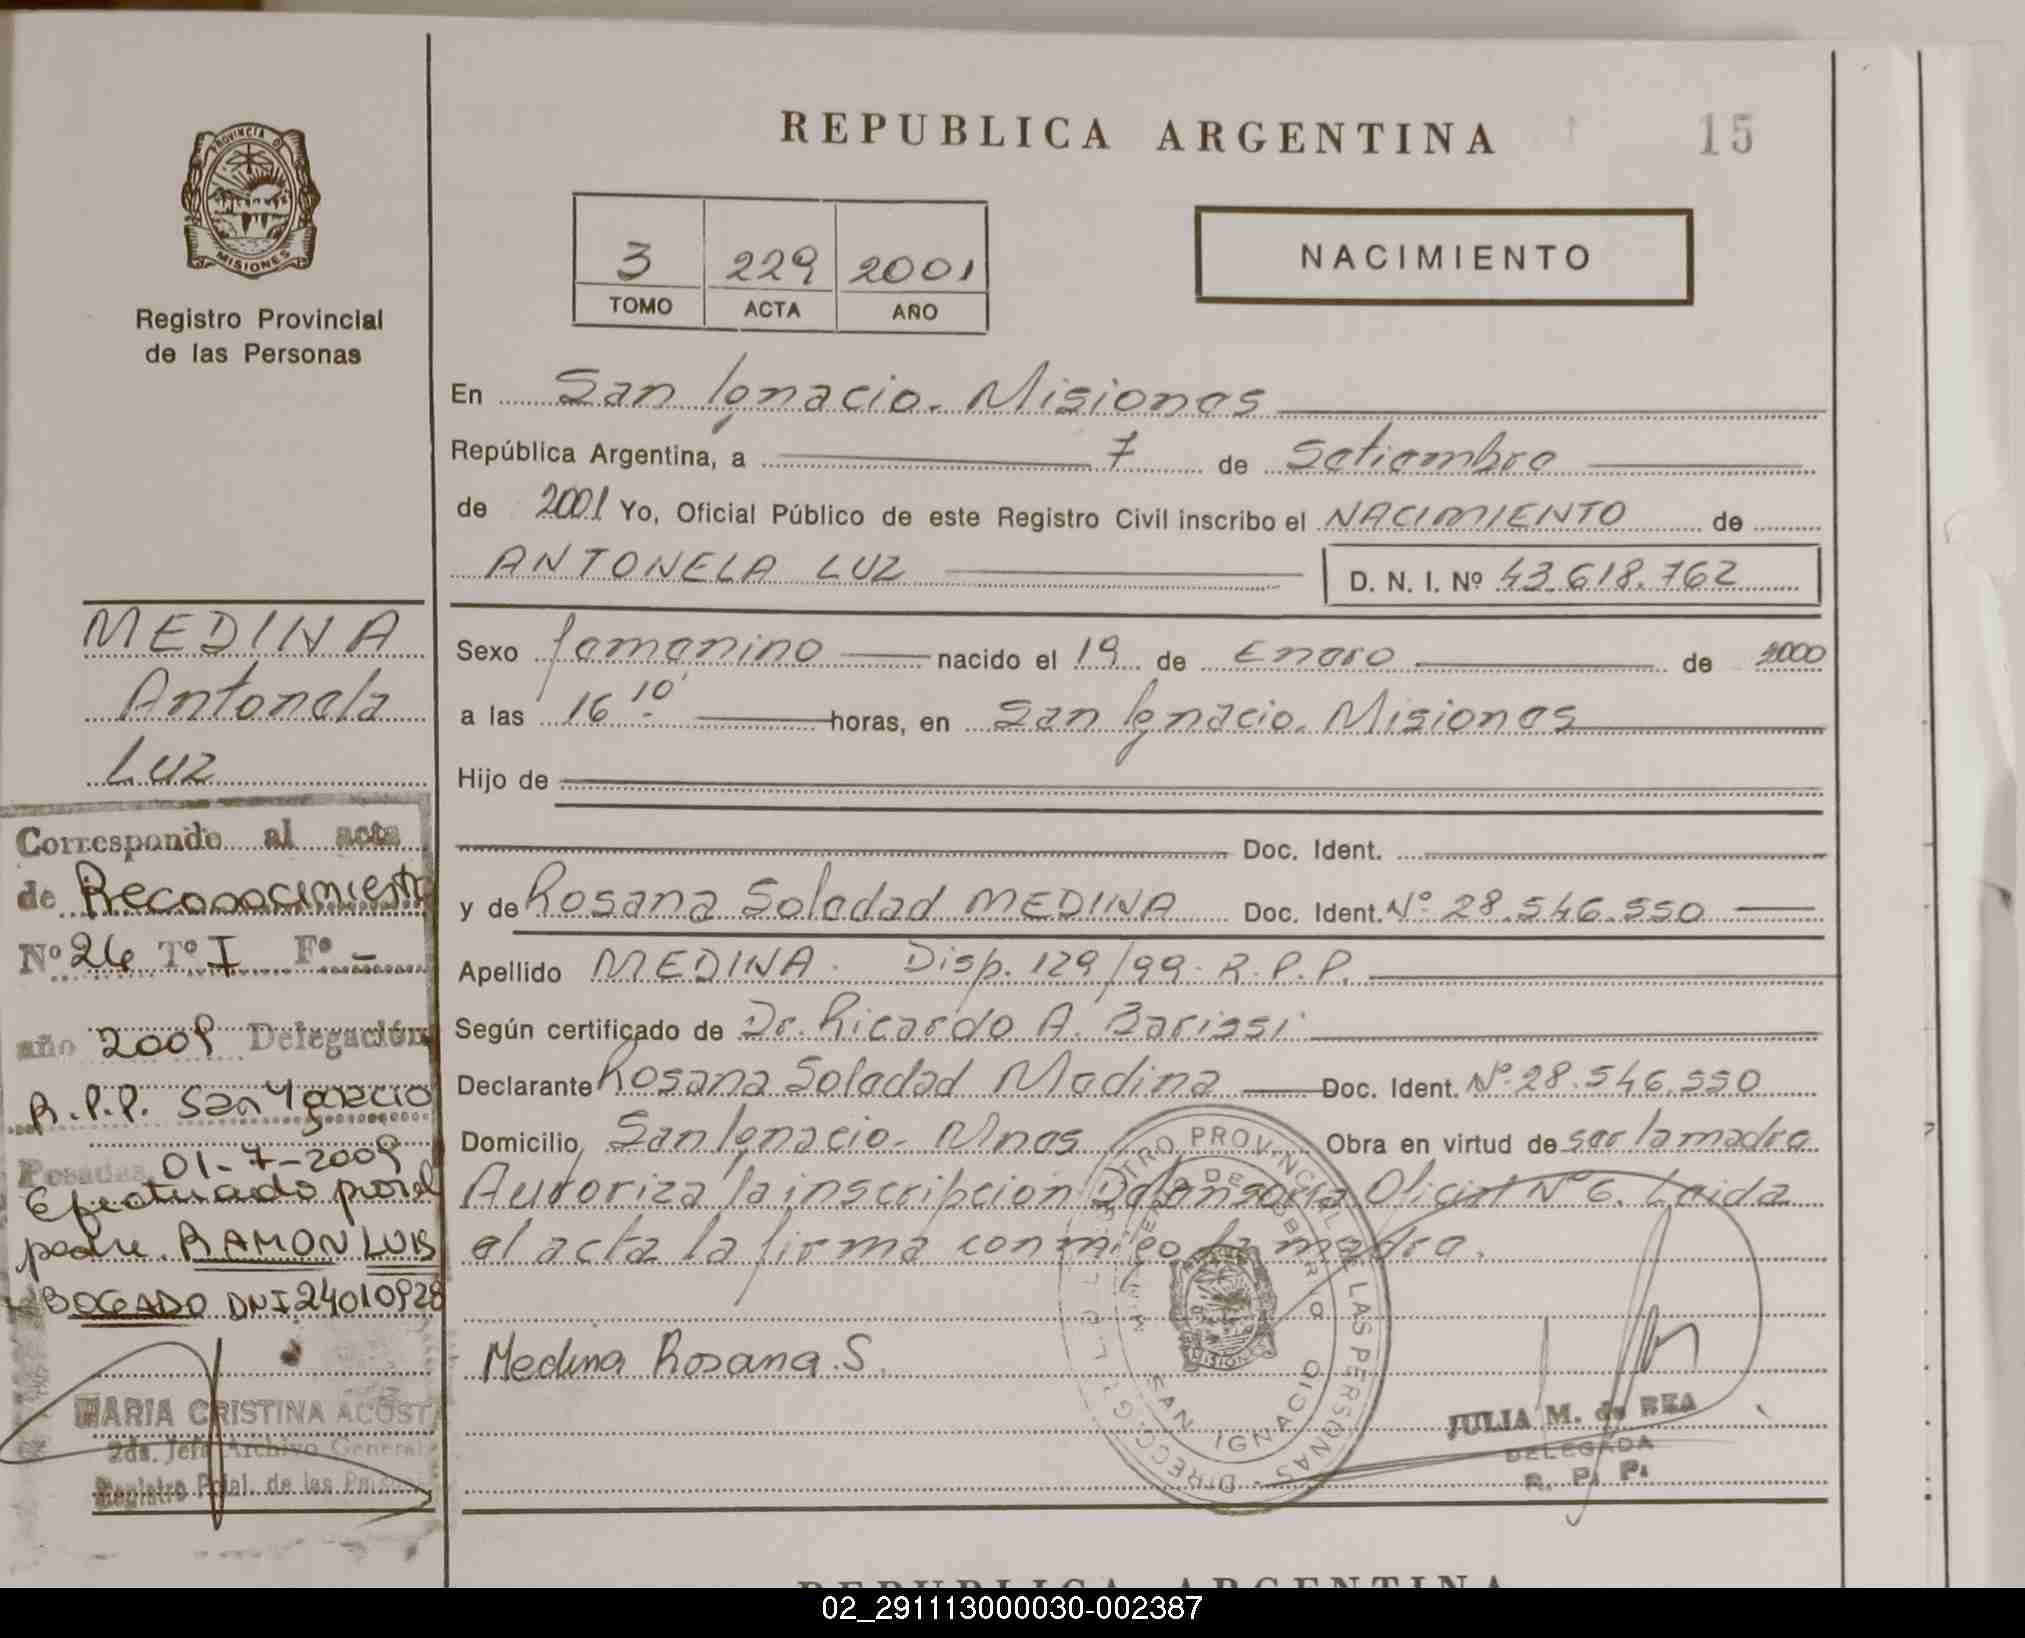 REPUBLICA ARGENTINA
15
PROVINCIA D
MISIONES
Registro Provincial
de las Personas
3 229 2001
TOMO ACTA AÑO
NACIMIENTO
En San Ignacio. Misiones
República Argentina, a 7 de Setiembre
de 2001 Yo, Oficial Público de este Registro Civil inscribo el NACIMIENTO de
ANTONELA LUZ D. N. I. Nº 43.618.762
Sexo femenino nacido el 19 de Enero de 2000
a las 16 10' horas, en San Ignacio. Misiones
Hijo de
Doc. Ident.
y de Rosana Soledad MEDINA Doc. Ident. Nº 28.546.550
Apellido MEDINA. Disp. 129/99. R.P.P.
Según certificado de Dr. Ricardo A.
Declarante Rosana Soledad Medina Doc. Ident. Nº 28.546.550
Domicilio San Ignacio. Mnes Obra en virtud de ser la madre
Autoriza la inscripcion Defensoria Oficial Nº 6. Leida
el acta la firma conmigo la madre.
Medina Rosana S.
JULIA M. de REA
DELEGADA
R. P. P.
SAN IGNACIO
MISIONES
MEDINA
Antonela
Luz
Corresponde al acta
de Reconocimiento
Nº 26 Tº I Fº -
año 2009 Delegación
R.P.P. San Ygnacio
Posadas 01-7-2009
Efectuado por el
padre RAMON LUIS
BOGADO DNI 24010928
MARIA CRISTINA ACOSTA
2da. Jefe Archivo General
Registro Pcial. de las Personas
REPUBLICA ARGENTINA
02_291113000030-002387